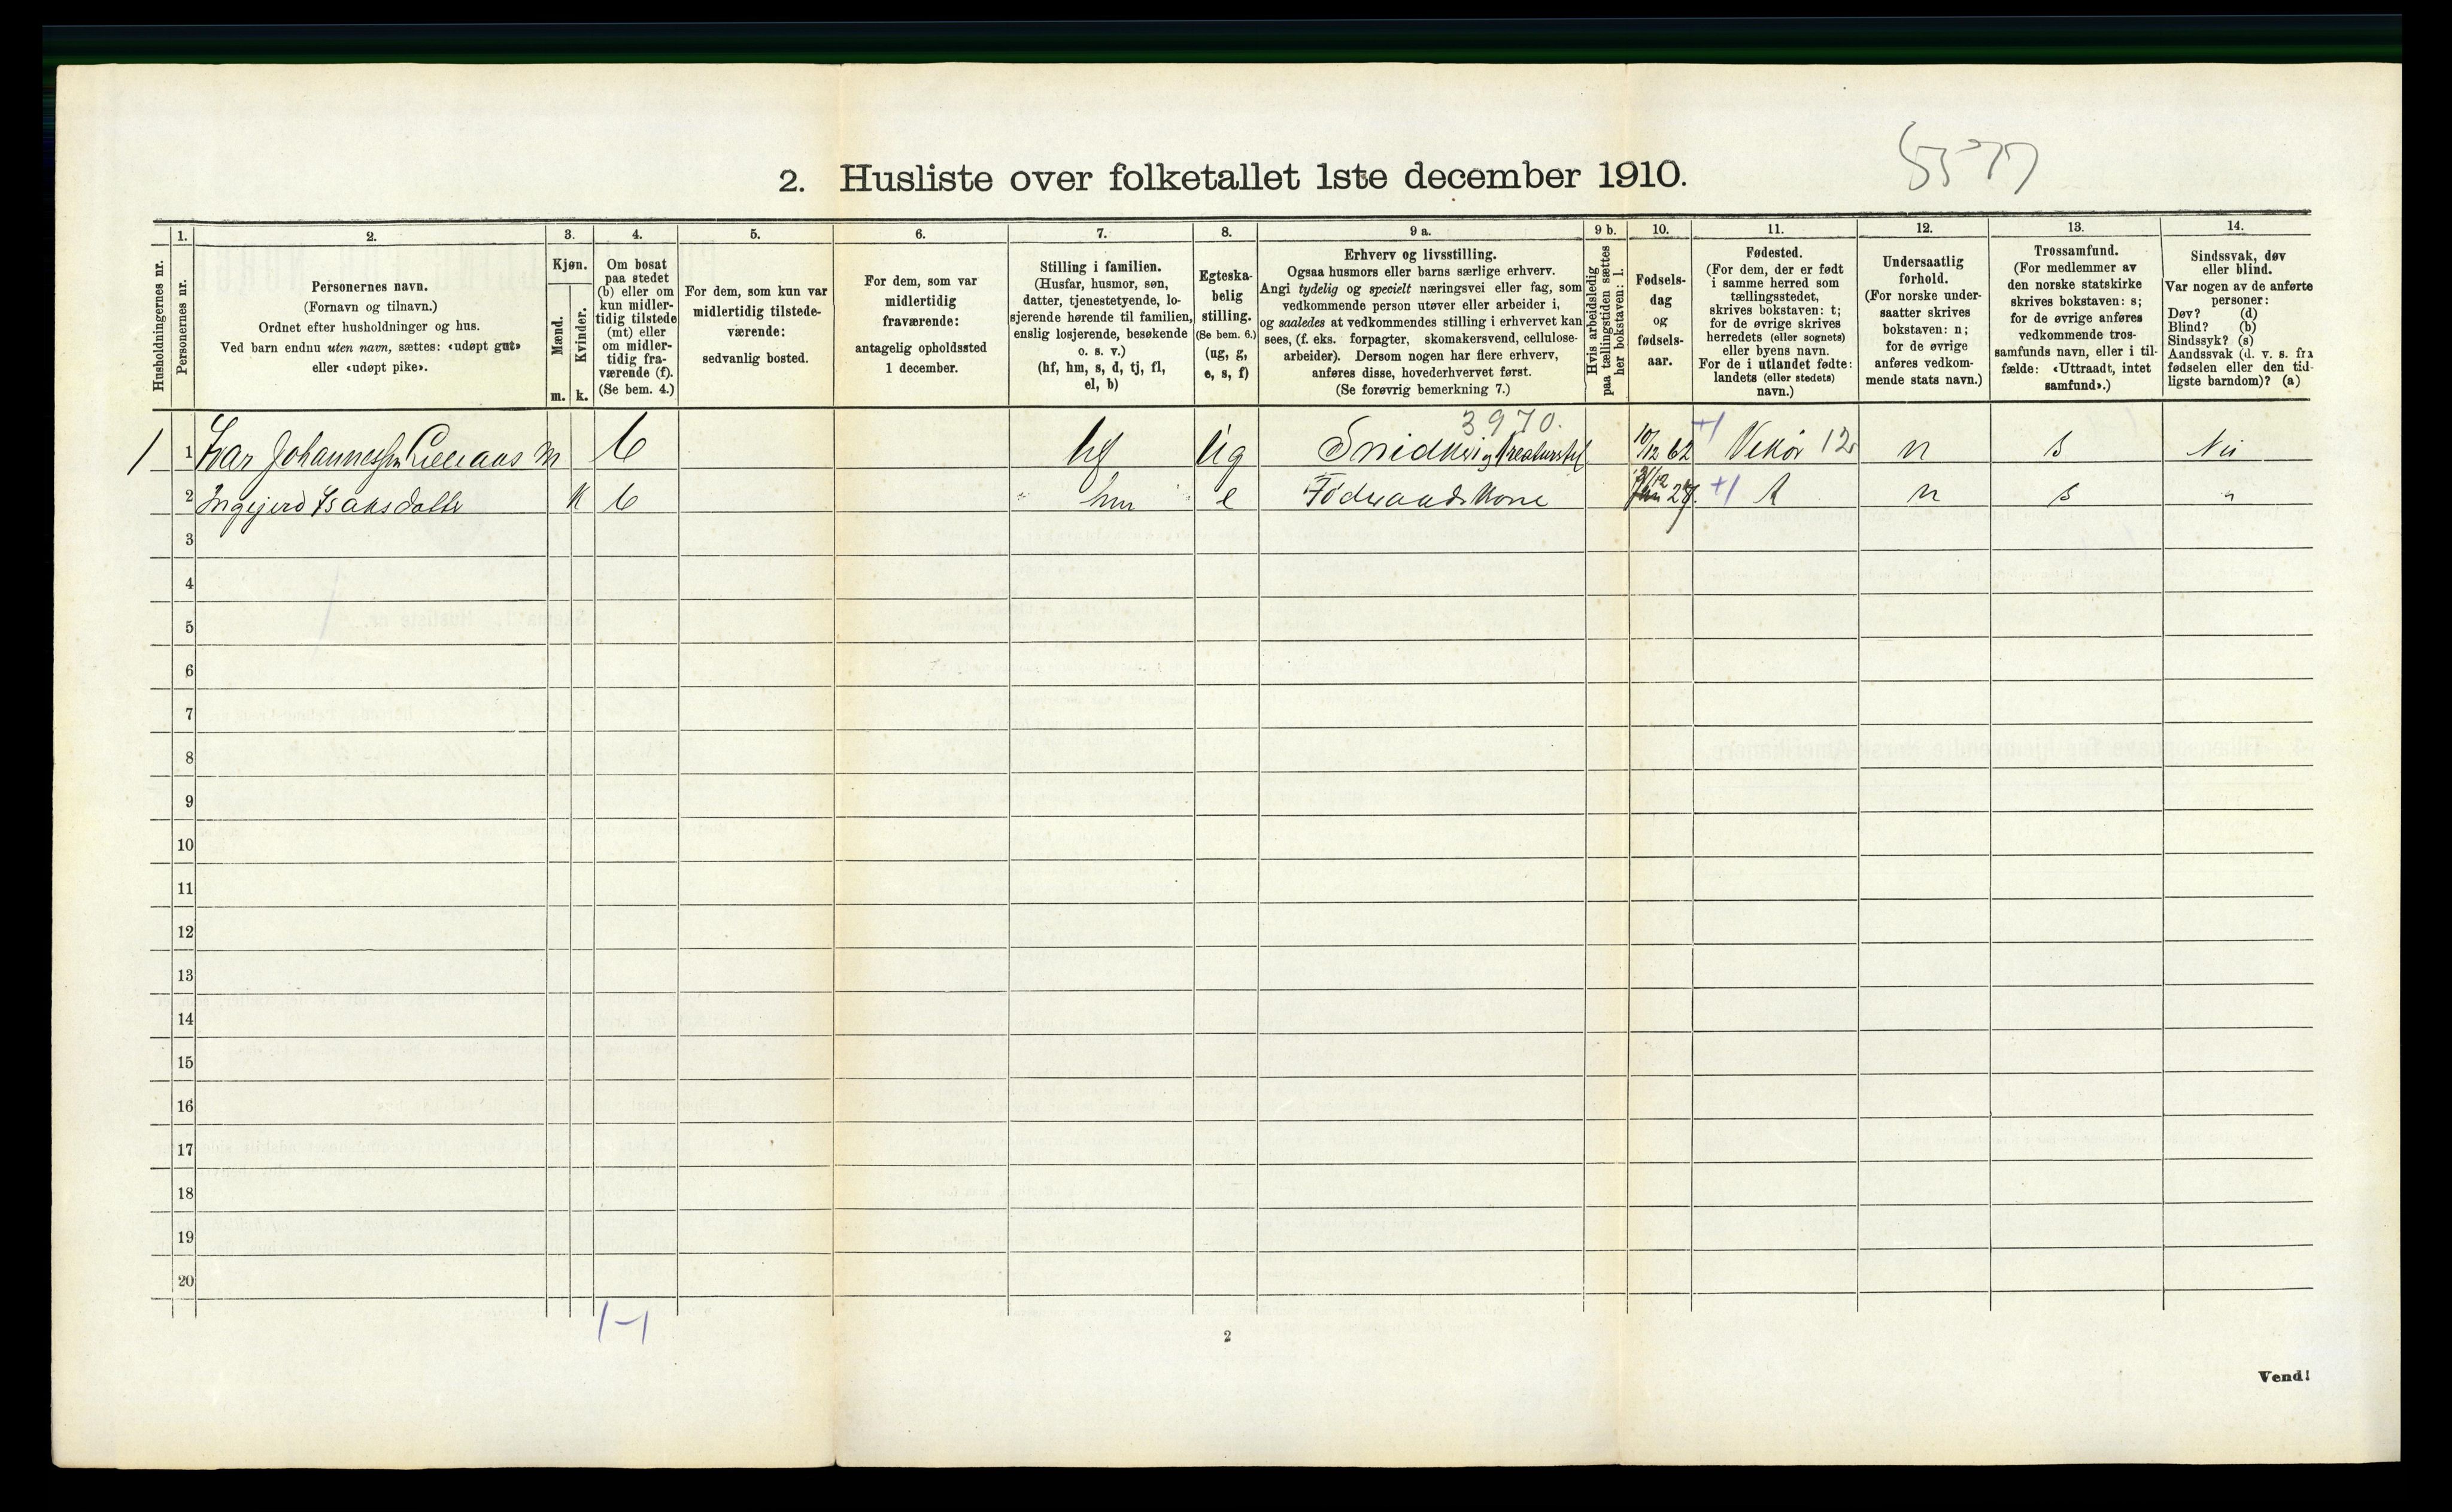 5577
2. Husliste over folketallet 1ste december 1910.
Husholdningernes nr.
1.
Personernes nr.
2.
Personernes navn.
(Fornavn og tilnavn.)
Ordnet efter husholdninger og hus.
Ved barn endnu uten navn, sættes: «udøpt gut»
eller «udøpt pike».
3.
Kjøn.
Mænd.
Kvinder.
m. k.
4.
Om bosat
paa stedet
(b) eller om
kun midler-
tidig tilstede
(mt) eller
om midler-
tidig fra-
værende (f).
(Se bem. 4.)
5.
For dem, som kun var
midlertidig tilstede-
værende:
sedvanlig bosted.
6.
For dem, som var
midlertidig
fraværende:
antagelig opholdssted
1 december.
7.
Stilling i familien.
(Husfar, husmor, søn,
datter, tjenestetyende, lo-
sjerende hørende til familien,
enslig losjerende, besøkende
o. s. v.)
(hf, hm, s, d, tj, fl,
el, b)
8.
Egteska-
belig
stilling.
(Se bem. 6.)
(ug, g,
e, s, f)
9 a.
Erhverv og livsstilling.
Ogsaa husmors eller barns særlige erhverv.
Angi tydelig og specielt næringsvei eller fag, som
vedkommende person utøver eller arbeider i,
og saaledes at vedkommendes stilling i erhvervet kan
sees, (f. eks. forpagter, skomakersvend, cellulose-
arbeider). Dersom nogen har flere erhverv,
anføres disse, hovederhvervet først.
(Se forøvrig bemerkning 7.)
9 b.
Hvis arbeidsledig
paa tællingstiden sættes
her bokstaven: l.
10.
Fødsels-
dag
og
fødsels-
aar.
11.
Fødested.
(For dem, der er født
i samme herred som
tællingsstedet,
skrives bokstaven: t;
for de øvrige skrives
herredets (eller sognets)
eller byens navn.
For de i utlandet fødte:
landets (eller stedets)
navn.)
12.
Undersaatlig
forhold.
(For norske under-
saatter skrives
bokstaven: n;
for de øvrige
anføres vedkom-
mende stats navn.)
13.
Trossamfund.
(For medlemmer av
den norske statskirke
skrives bokstaven: s;
for de øvrige anføres
vedkommende tros-
samfunds navn, eller i til-
fælde: «Uttraadt, intet
samfund».)
14.
Sindssvak, døv
eller blind.
Var nogen av de anførte
personer:
Døv? (d)
Blind? (b)
Sindssyk? (s)
Aandssvak (d. v. s. fra
fødselen eller den tid-
ligste barndom)? (a)
3970.
1 1 Ivar Johannessen m b hf ug 10/12 62 +1 Vikør 12 n s Nei
2 Ingjerd Isaksdatter k b hm e Føderaadskone 31/12 27. +1 n s "
3
4
5
6
7
8
9
10
11
12
13
14
15
16
17
18
19
20
1-1
2
Vend!